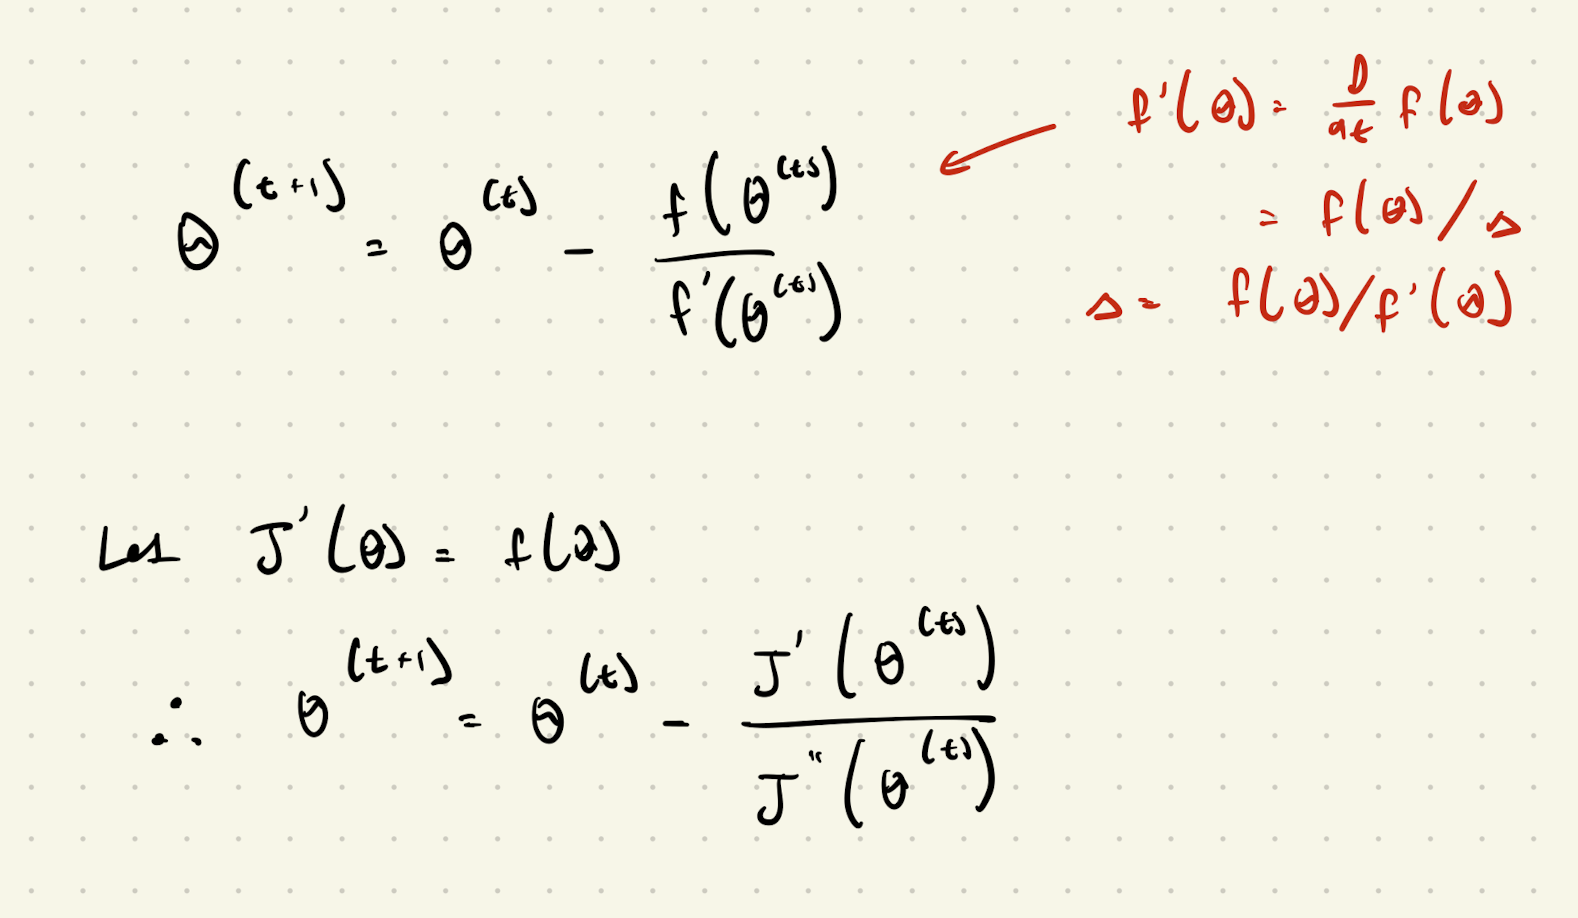 θ^(t+1) = θ^(t) − f(θ^(t)) / f'(θ^(t))
f'(θ) = D/at f(θ)
= f(θ) / Δ
Δ = f(θ) / f'(θ)
Let J'(θ) = f(θ)
∴ θ^(t+1) = θ^(t) − J'(θ^(t)) / J''(θ^(t))